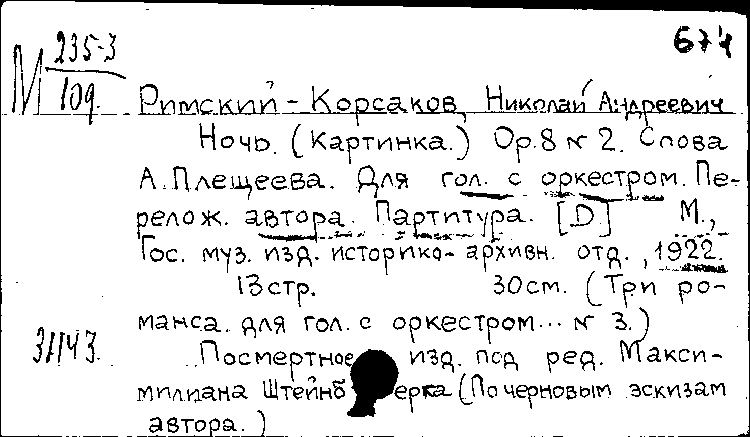 М 235-3/109.
674
Римский-Корсаков, Николай Андреевич
Ночь. (Картинка.) Op.8 № 2. Слова
А.Плещеева. Для гол. с оркестром. Пе-
релож. автора. Партитура. [D] М.,
Гос. муз. изд. историко-архивн. отд., 1922.
13стр. 30см. (Три ро-
манса. для гол. с оркестром... № 3.)
31143.
Посмертное изд. под ред. Макси-
милиана Штейнберга (По черновым эскизам
автора.)